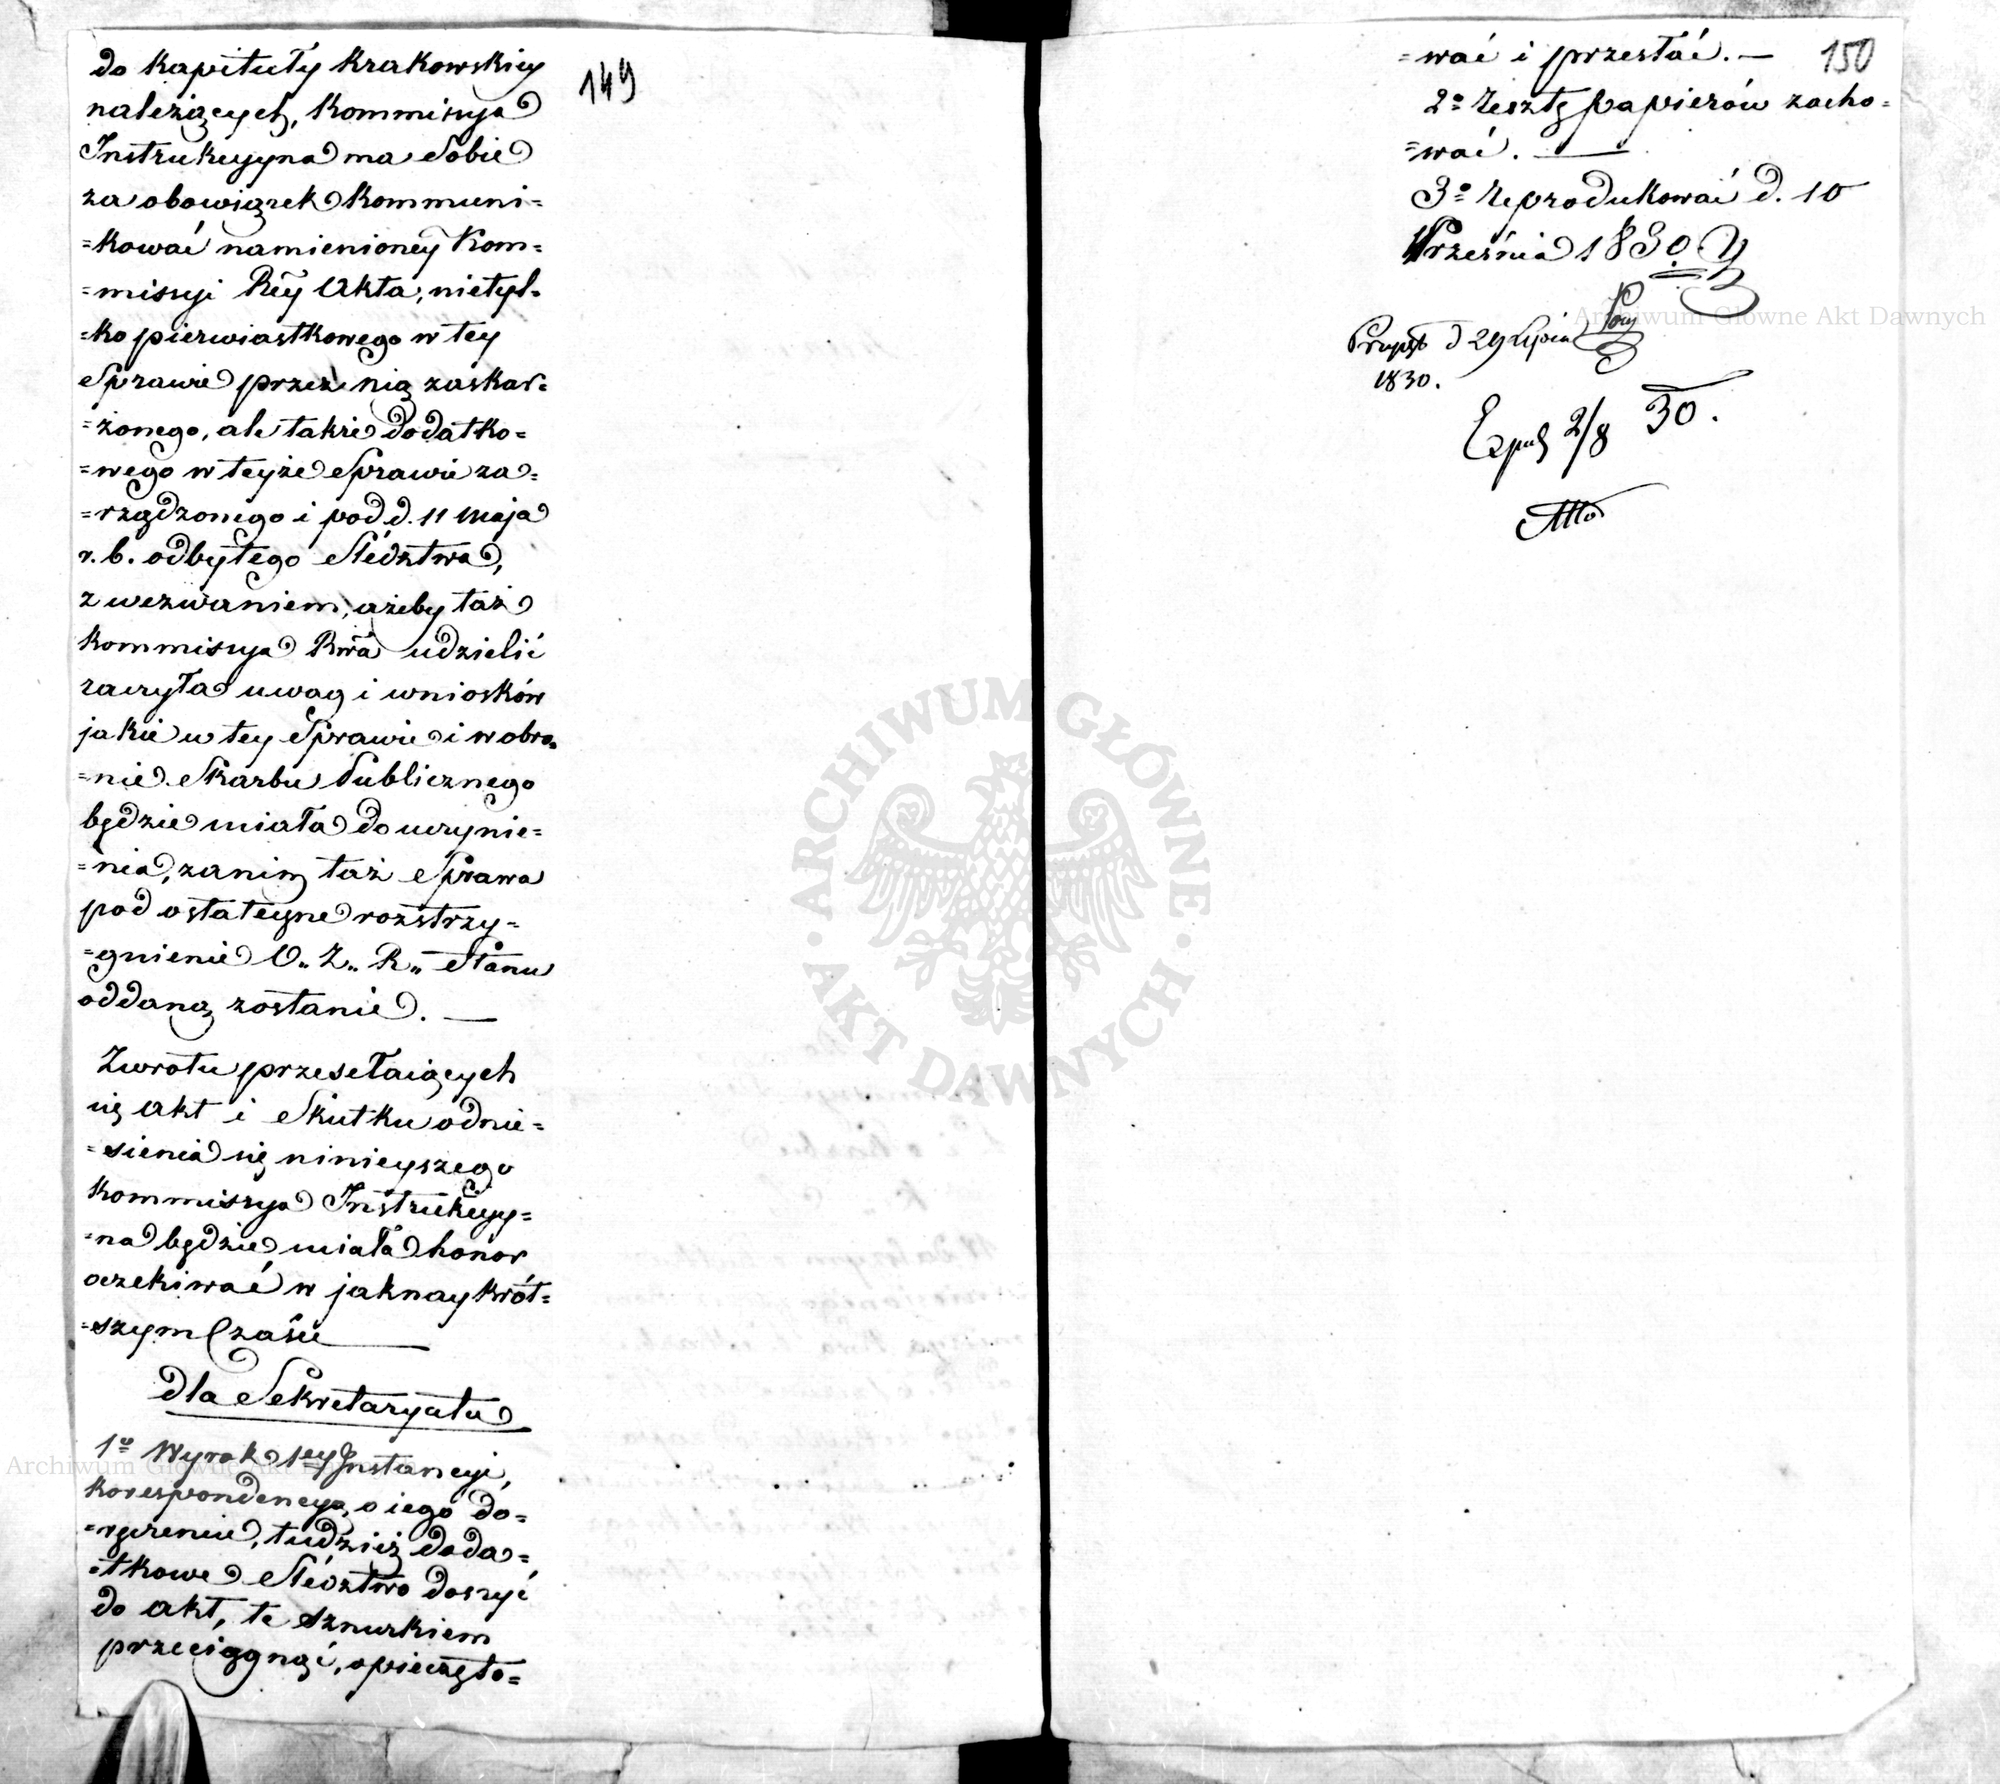 149
do Kapituły Krakowskiey
należących, Kommissya
Instrukcyyna ma Sobie
za obowiązek Kommuni=
=kować namienioney Kom=
=missyi Rey Akta, nietyl=
=ko pierwiastkowego w tey
Sprawie przez nią zaskar=
=żonego, ale także dodatko=
=wego w teyże Sprawie za=
=rządzonego i pod d. 11 Maja
r. b. odbytego Śledztwa,
z wezwaniem, ażeby taż
Kommissya Rwa udzielić
raczyła uwag i wniosków
jakie w tey Sprawie i w obro=
=nie Skarbu Publicznego
będzie miała do uczynie=
=nia, zanim taż Sprawa
pod ostateczne rozstrzy=
=gnienie O.. Z.. R.. Stanu
oddaną zostanie. —
Zwrotu przesełaiących
się Akt i Skutku odnie=
=sienia się ninieyszego
Kommissya Instrukcyy=
=na będzie miała honor
oczekiwać w jaknaykrót=
=szym Czasie —
dla Sekretaryatu
1º Wyrok 1ey Instancyi,
korespondencyą o iego do=
=ręczenie, tudzież doda=
=tkowe Śledztwo doszyć
do Akt, te sznurkiem
przeciągnąć, opieczęto=
150
=wać i przesłać. —
2º Resztę papierów zacho=
=wać. —
3º Reprodukować d. 10
Września 1830
d 29 Lipca
1830.
Exped 2/8 30.
ARCHIWUM GŁÓWNE
· AKT DAWNYCH ·
Archiwum Główne Akt Dawnych
Archiwum Główne Akt Dawnych